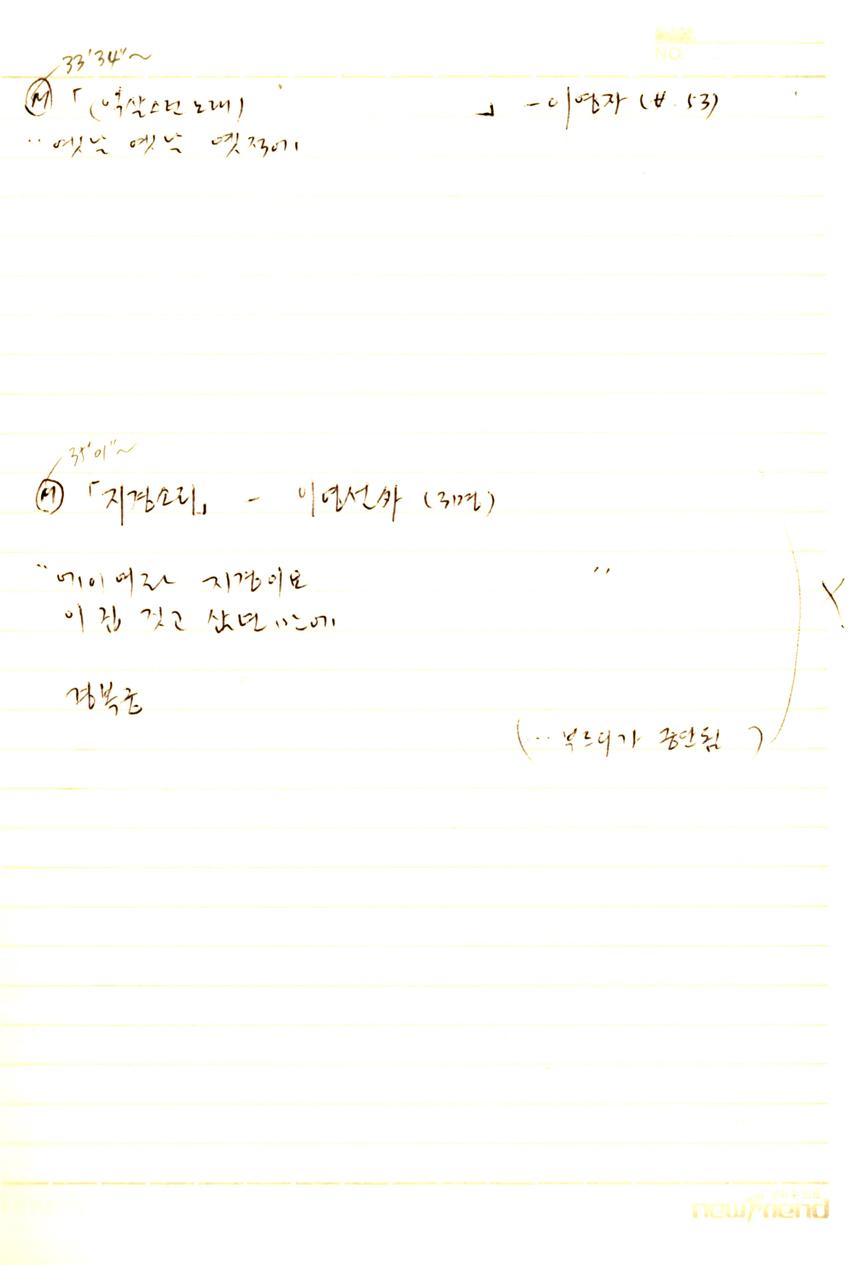 NO.
33'34"~
M 「(익살스런 노래) 」 - 이영자 (女. 53)
‥ 옛날 옛날 옛적에
35'01"~
M 「지경소리」 - 이연선外 (3명)
"에이여라 지경이요 "
이 집 짓고 삼년만에
경복궁
(‥ 부르다가 중단됨 )
newfriend